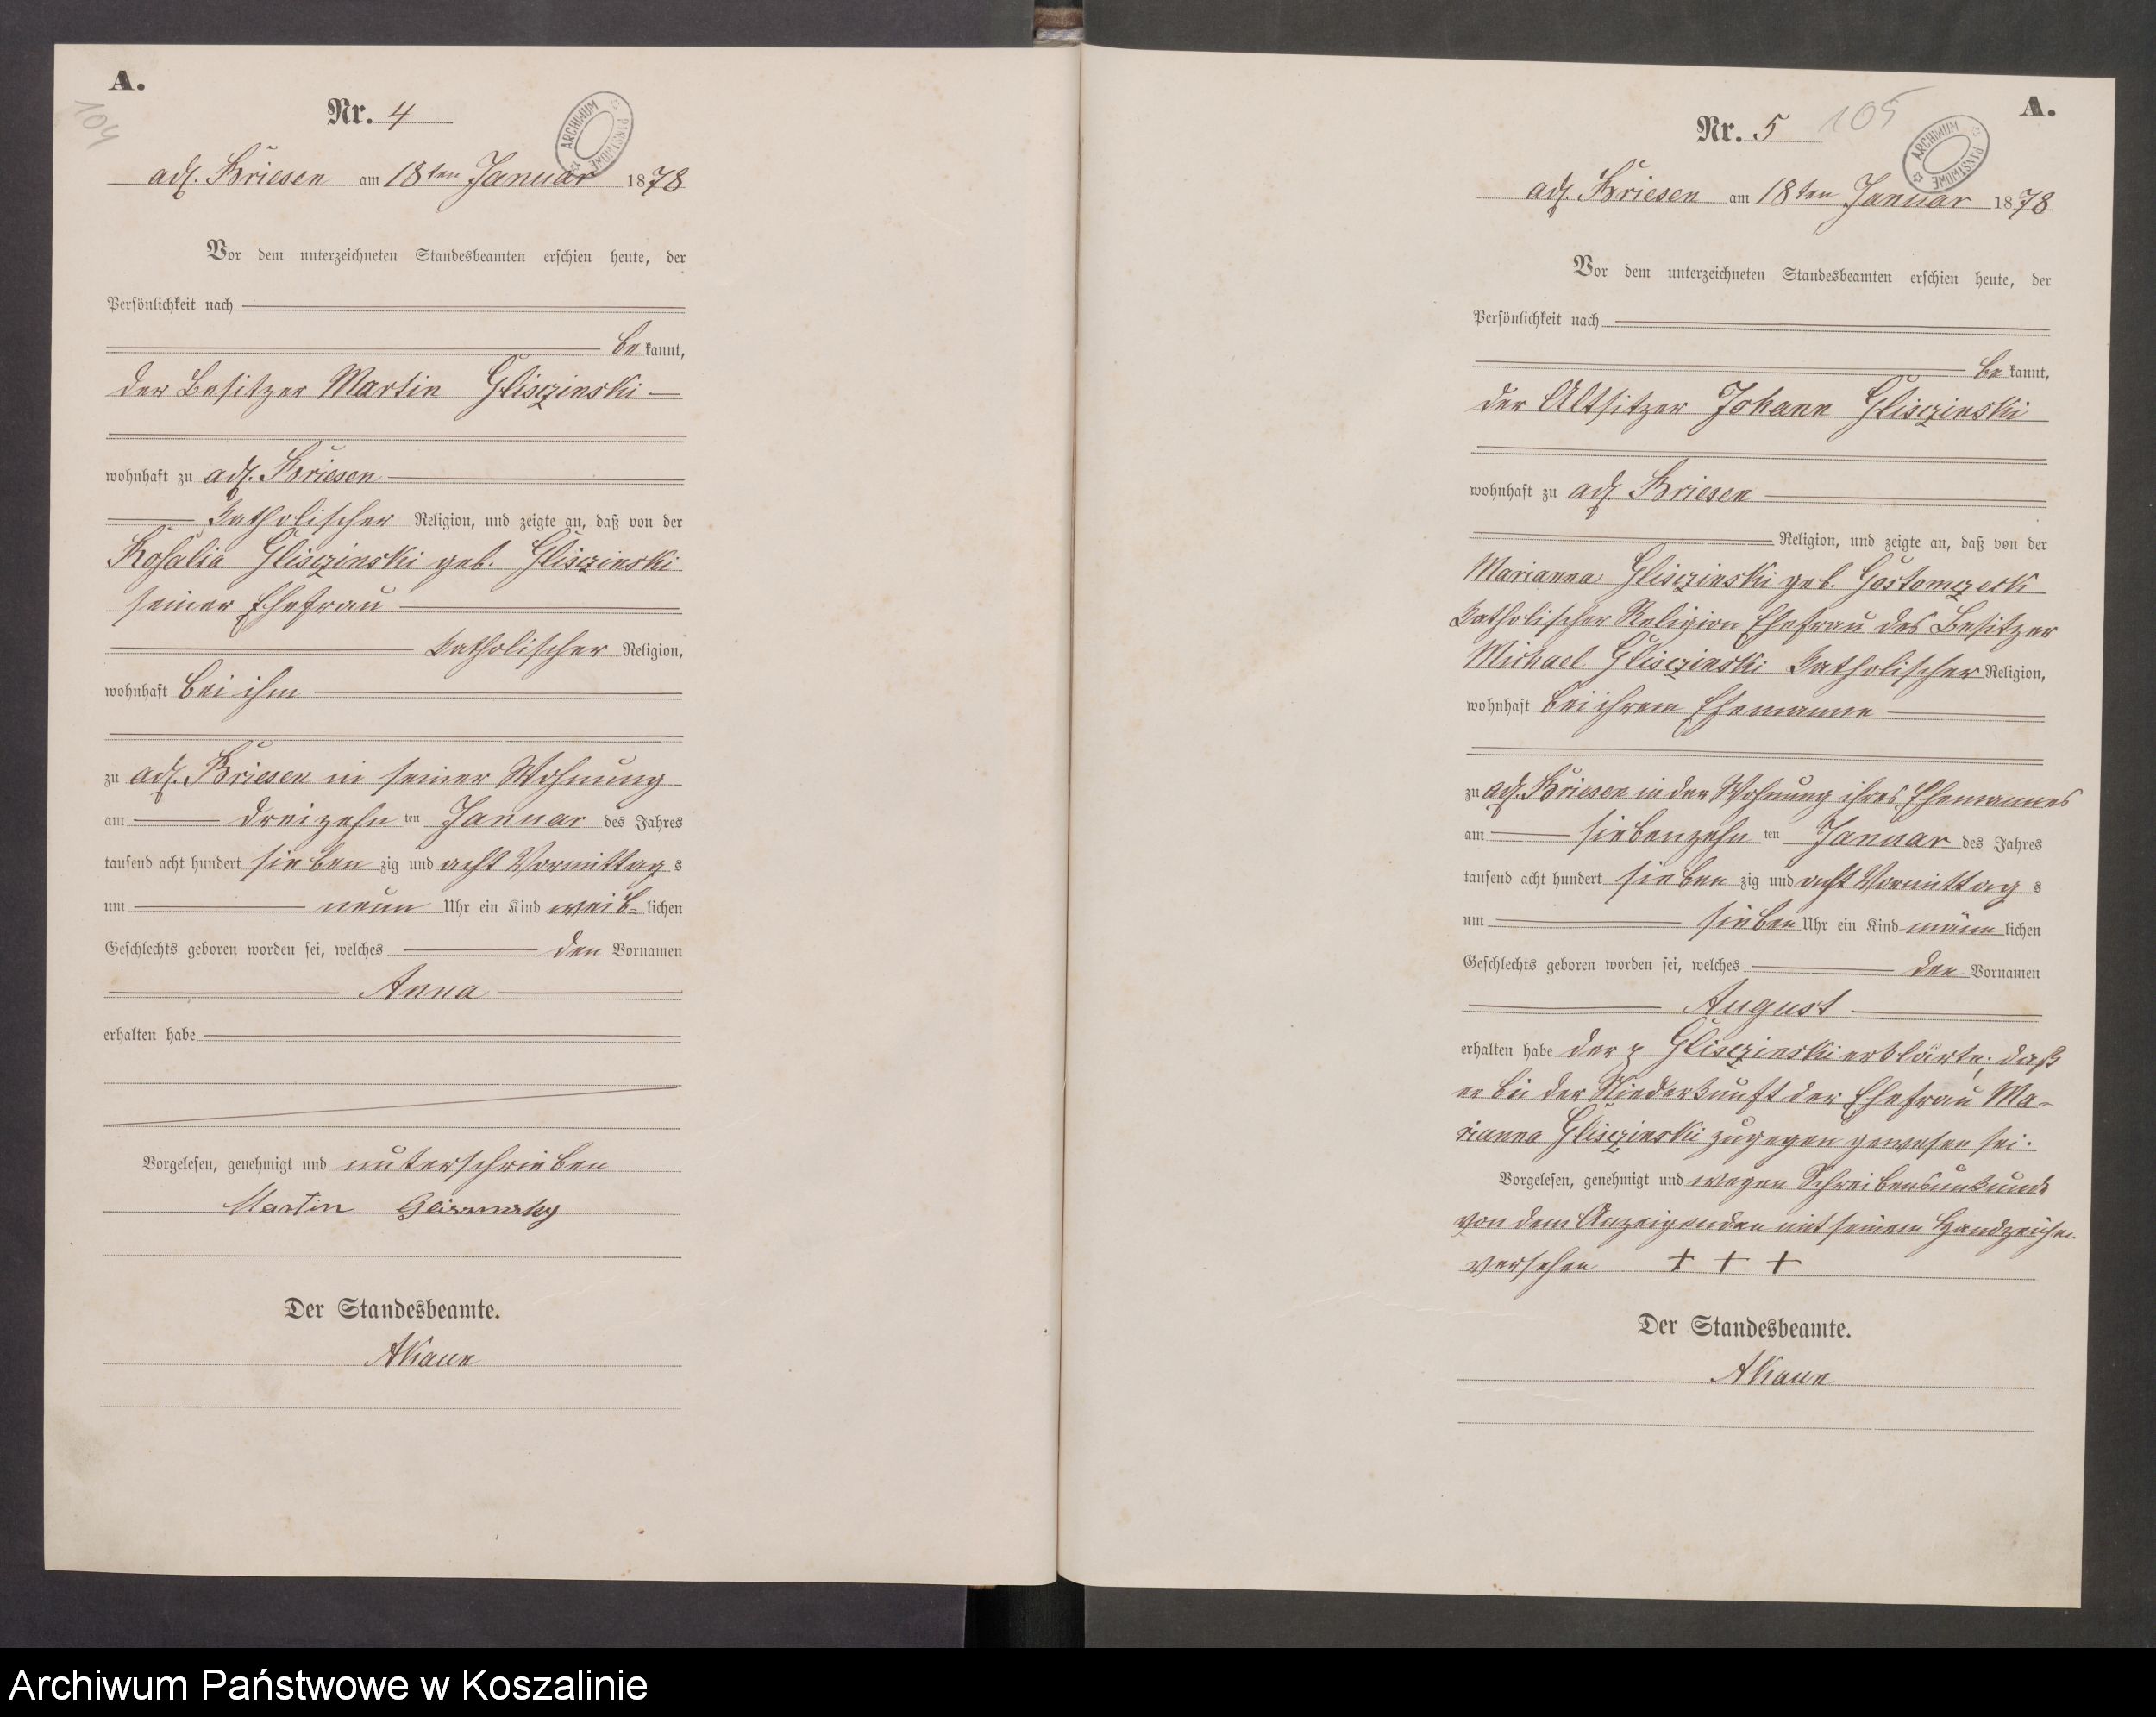 A.
104
Nr. 4
ARCHIWUM PAŃSTWOWE
adl. Briesen am 18ten Januar 1878
Vor dem unterzeichneten Standesbeamten erschien heute, der
Persönlichkeit nach
be kannt,
der Besitzer Martin Glisczinski
wohnhaft zu adl. Briesen
katholischer Religion, und zeigte an, daß von der
Rosalia Glisczinski geb. Glisczinski
seiner Ehefrau
katholischer Religion,
wohnhaft bei ihm
zu adl. Briesen in seiner Wohnung
am dreizehn ten Januar des Jahres
tausend acht hundert sieben zig und acht Vormittag s
um neun Uhr ein Kind weib- lichen
Geschlechts geboren worden sei, welches den Vornamen
Anna
erhalten habe
Vorgelesen, genehmigt und unterschrieben
Martin
Der Standesbeamte.
A.
Nr. 5 105
ARCHIWUM PAŃSTWOWE
adl. Briesen am 18ten Januar 1878
Vor dem unterzeichneten Standesbeamten erschien heute, der
Persönlichkeit nach
be kannt,
der Altsitzer Johann Glisczinski
wohnhaft zu adl. Briesen
Religion, und zeigte an, daß von der
Marianna Glisczinski geb. Gostomczeck
katholischer Religion Ehefrau des Besitzer
Michael Glisczinski katholischer Religion,
wohnhaft bei ihrem Ehemanne
zu adl. Briesen in der Wohnung ihres Ehemannes
am siebenzehn ten Januar des Jahres
tausend acht hundert sieben zig und acht Vormittag s
um sieben Uhr ein Kind männ lichen
Geschlechts geboren worden sei, welches den Vornamen
August
erhalten habe der Glisczinski erklärte, daß
er bei der Niederkunft der Ehefrau Ma-
rianna Glisczinski zugegen gewesen sei.
Vorgelesen, genehmigt und wegen Schreibensunkunde
von dem Anzeigenden mit seinem Handzeichen
versehen + + +
Der Standesbeamte.
Archiwum Państwowe w Koszalinie